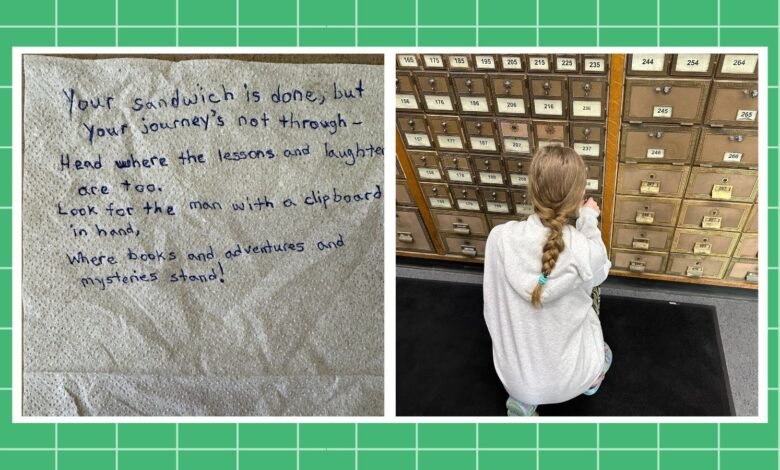 Your sandwich is done, but
your journey's not through –
Head where the lessons and laughter
are too.
Look for the man with a clipboard
in hand,
Where books and adventures and
mysteries stand!
165 175 185 195 205 215 225 235 244 254 264
156 176 196 206 216 236 245 265
157 177 187 197 207 237 246 266
158 178 198 208